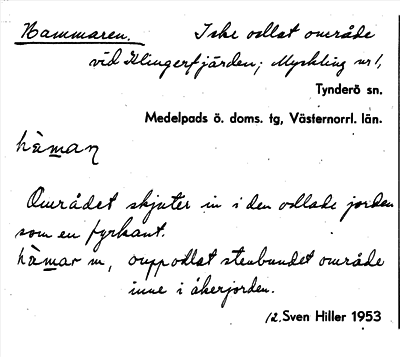 Hammaren. Icke odlat område
vid Klingerfjärden; Myckling nr 1,
Tynderö sn.
Medelpads ö. doms. tg, Västernorrl. län.
hàmaɳ
Området skjuter in i den odlade jorden
som en fyrkant.
hàmar m, ouppodlat stenbundet område
inne i åkerjorden.
12. Sven Hiller 1953